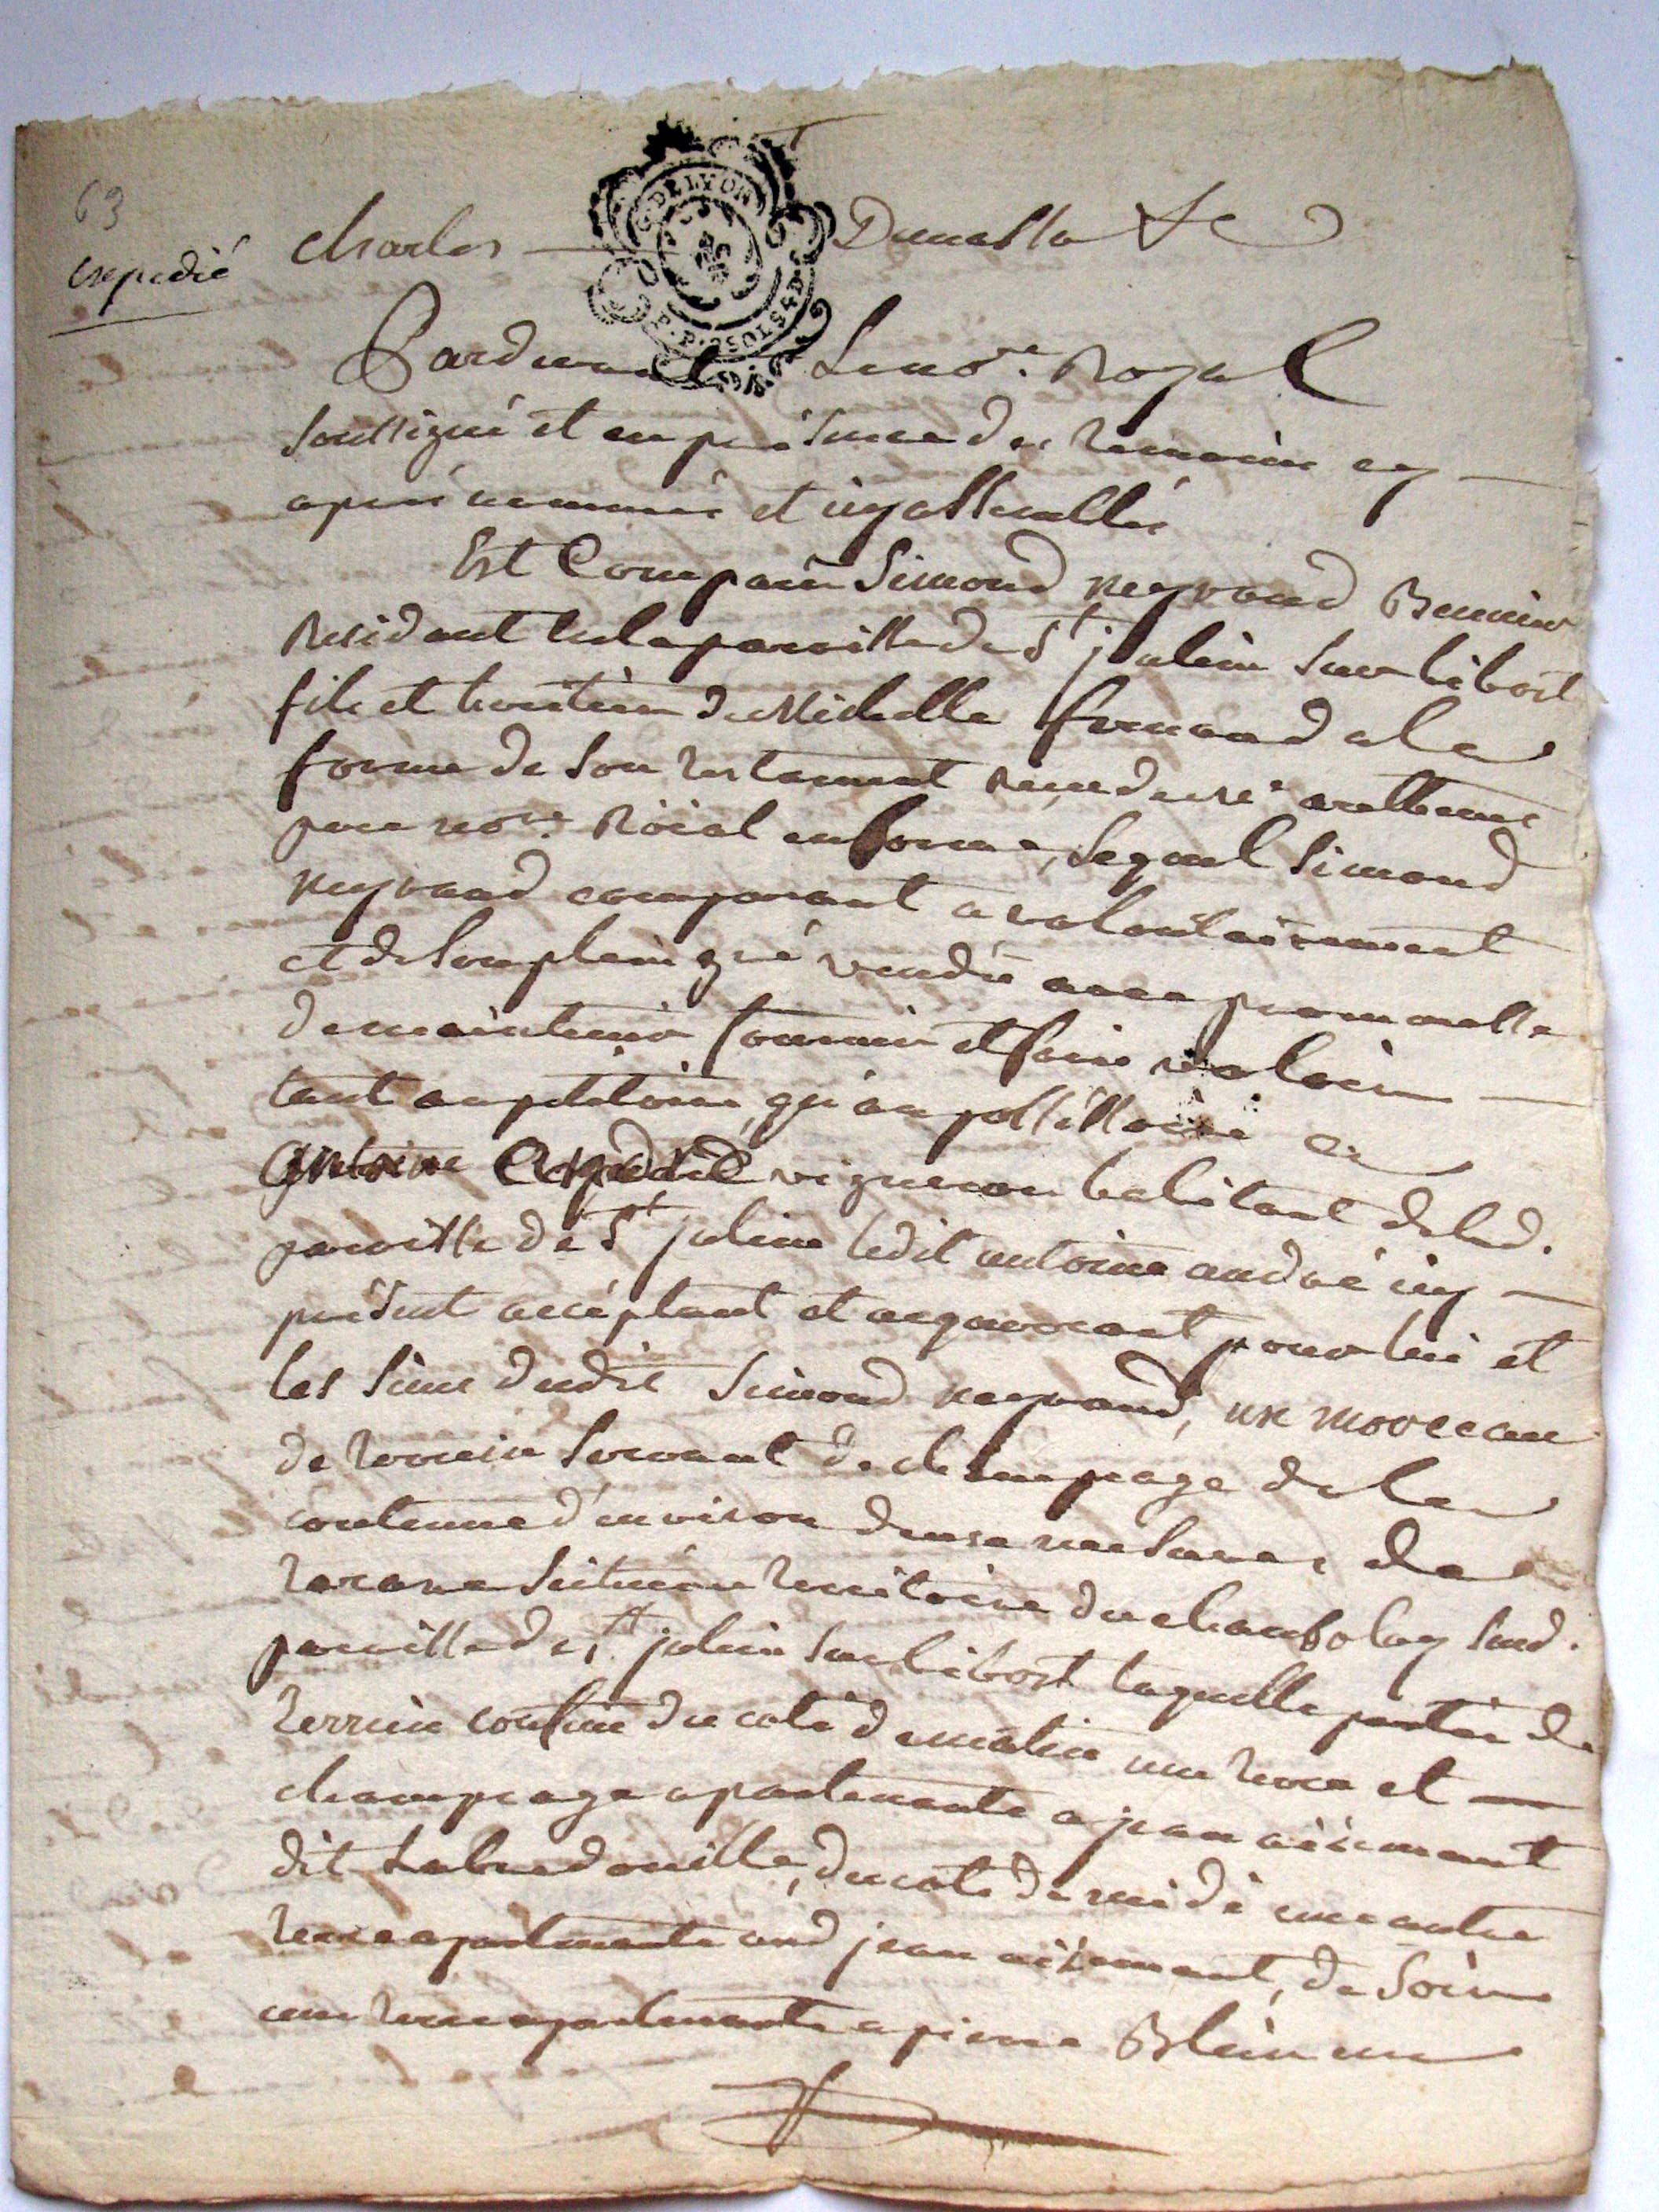 63
expedié
charles Dumas &c
G. DE LYON
Pardevant Le no.re Royal
soussigné et en présence des temoins cy
apres nommés et icy assemblés
Est Comparu Simond neyrand
Residant en la paroisse de St julien sur bibost
fils et heritier de Michelle ferrand a la
forme de son testament recu de me
pere no.re Roial en forme, lequel Simond
neyrand comparant a volontairement
et de son plein gré vendu avec promesse
de maintenir fournir et faire valoir
tant au petitoire qu'au possessoire a
Antoine andré vigneron habitant de lad.
paroisse de St julien ledit antoine andré icy
présent acceptant et acquerant pour lui et
les siens dudit Simond neyrand, un morceau
de terrein servant de champeage de la
contenue d'environ deux mesures de
tarare situé au territoire du chambolay sud.
paroisse de St julien sur bibost laquelle partie de
terrein confine du coté de matin une terre et
champeage apartenante a jean
dit , du coté de midi une autre
terre apartenante aud jean , de soir
une terre apartenante a pierre Blein une